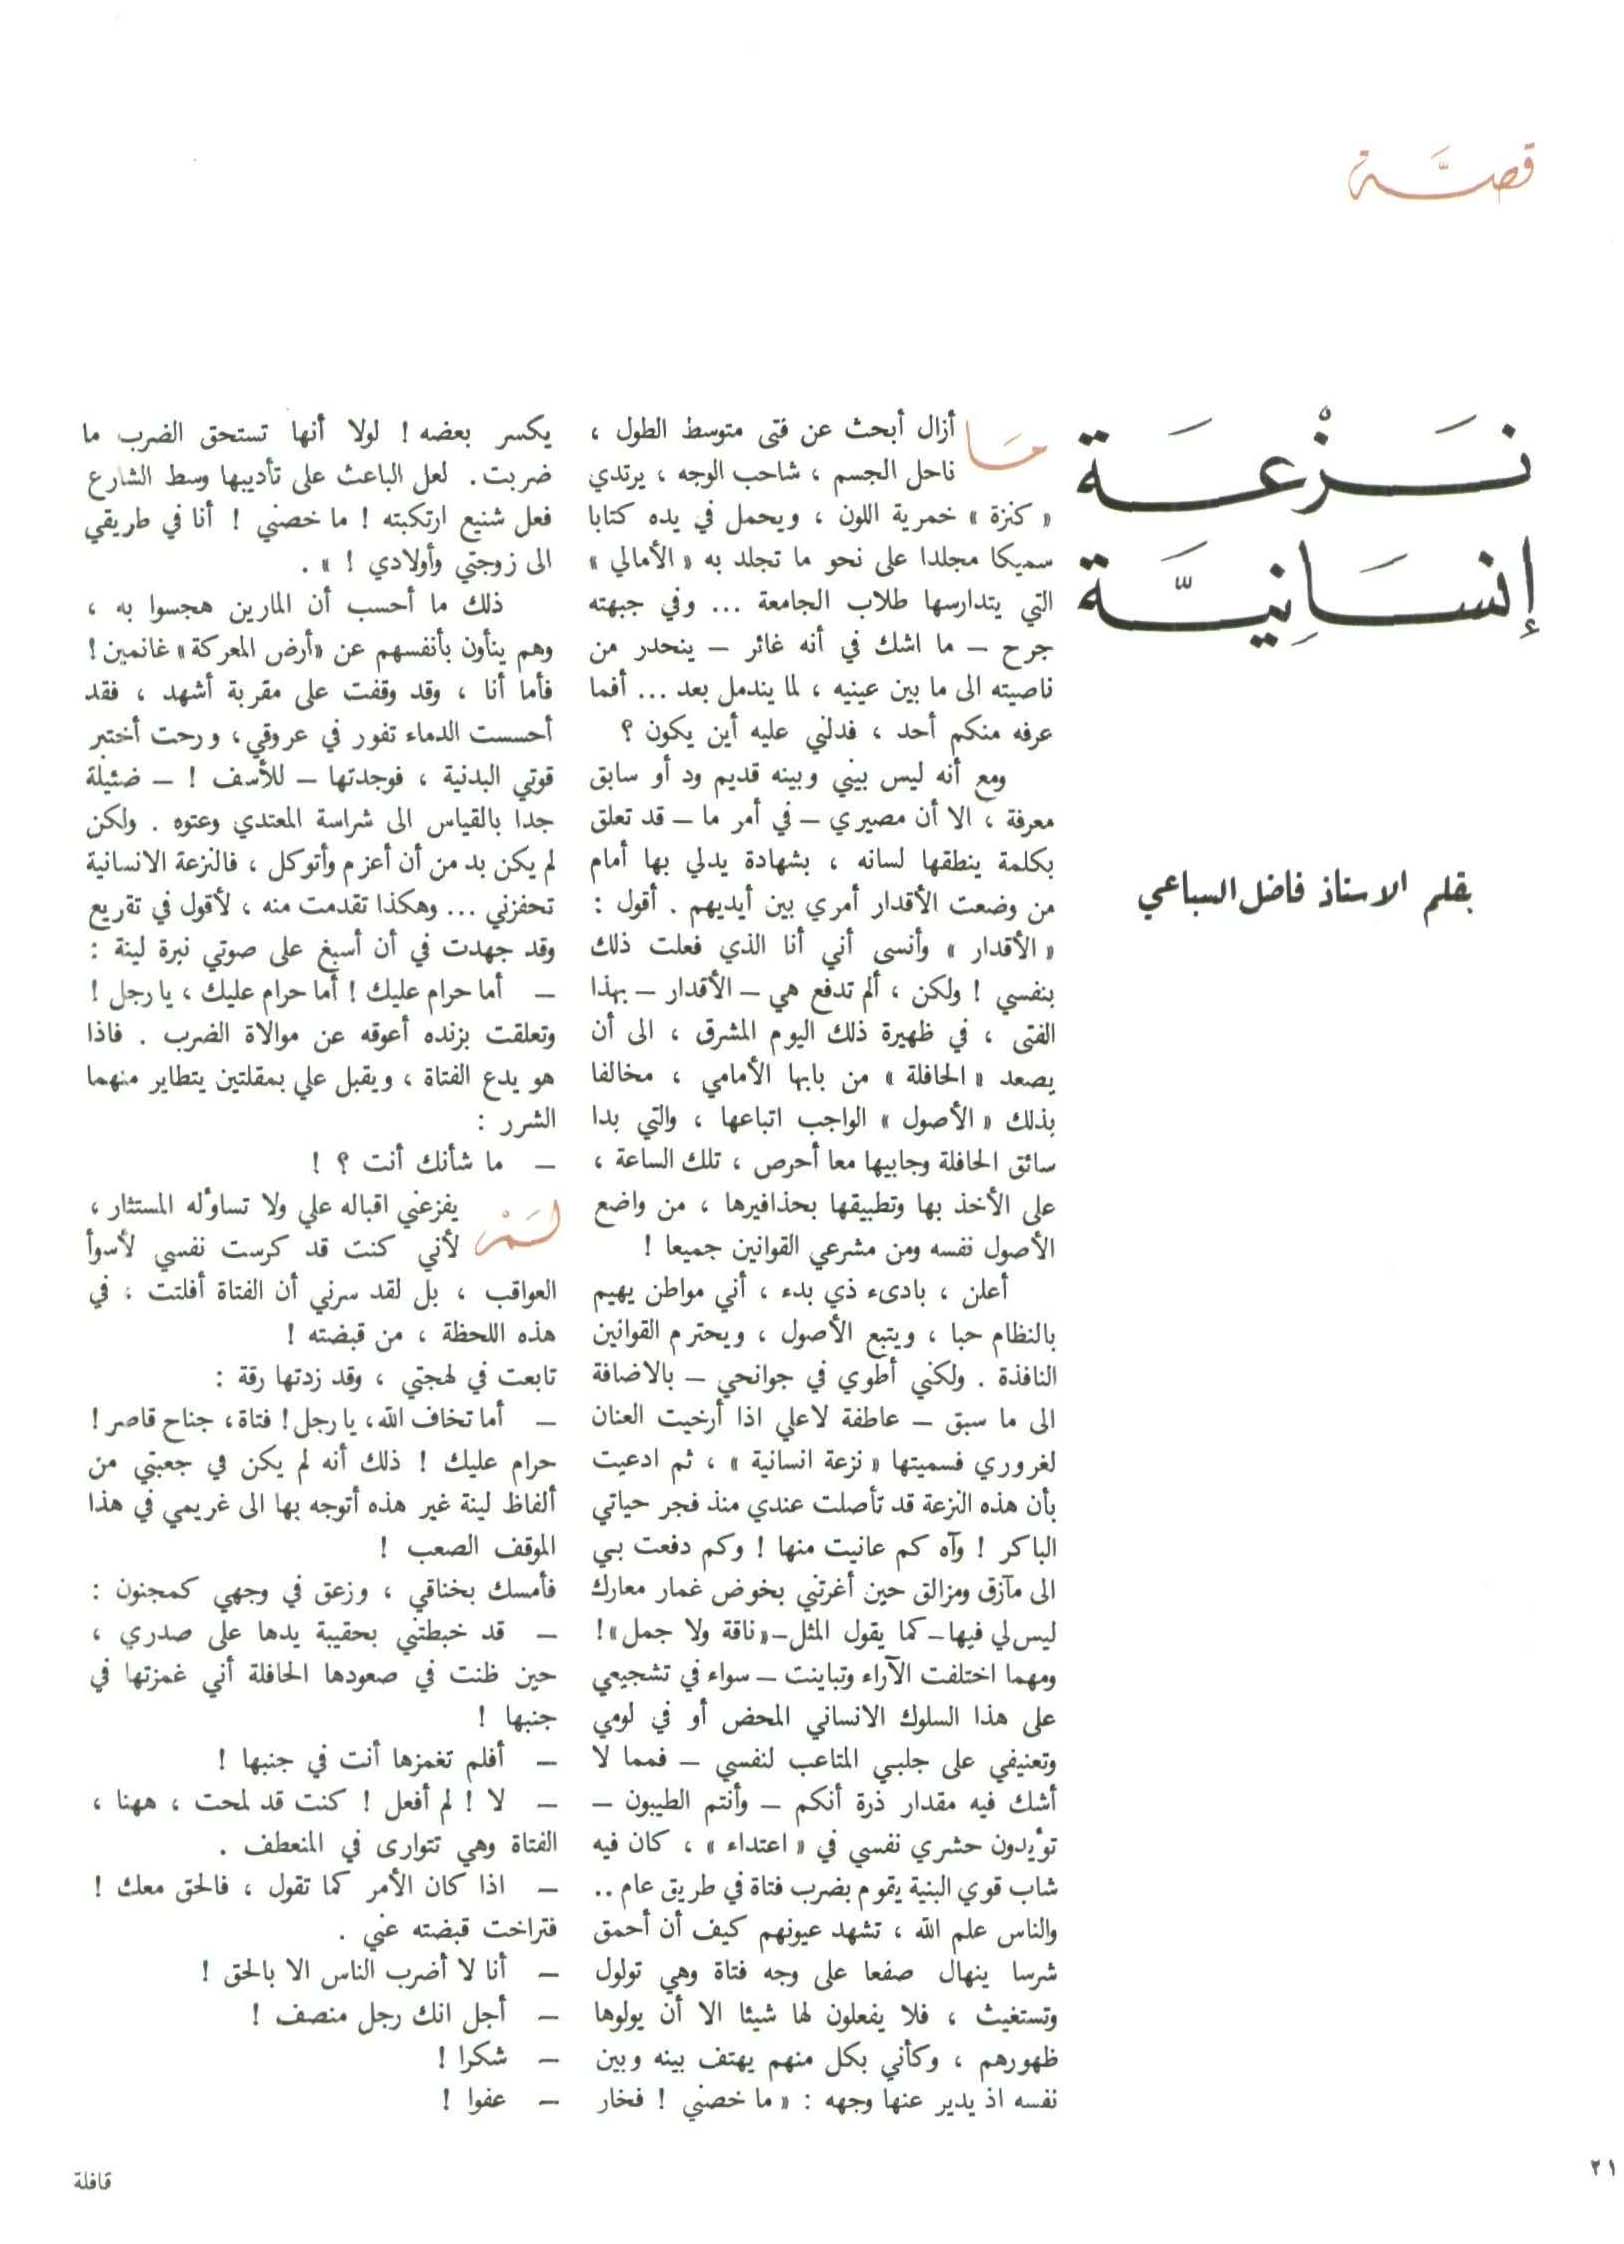 قصة
نزعة
إنسانية
بقلم الاستاذ فاضل السباعي
ما أزال أبحث عن فتى متوسط الطول ،
ناحل الجسم ، شاحب الوجه ، يرتدي
« كنزة » خمرية اللون ، ويحمل في يده كتابا
سميكا مجلدا على نحو ما تجلد به « الأمالي »
التي يتدارسها طلاب الجامعة ... وفي جبهته
جرح – ما اشك في أنه غائر – ينحدر من
ناصيته الى ما بين عينيه ، لما يندمل بعد ... أفما
عرفه منكم أحد ، فدلني عليه أين يكون ؟
ومع أنه ليس بيني وبينه قديم ود أو سابق
معرفة ، الا أن مصيري – في أمر ما – قد تعلق
بكلمة ينطقها لسانه ، بشهادة يدلي بها أمام
من وضعت الأقدار أمري بين أيديهم . أقول :
« الأقدار » وأنسى أني أنا الذي فعلت ذلك
بنفسي ! ولكن ، ألم تدفع هي – الأقدار – بهذا
الفتى ، في ظهيرة ذلك اليوم المشرق ، الى أن
يصعد « الحافلة » من بابها الأمامي ، مخالفا
بذلك « الأصول » الواجب اتباعها ، والتي بدا
سائق الحافلة وجابيها معا أحرص ، تلك الساعة ،
على الأخذ بها وتطبيقها بحذافيرها ، من واضع
الأصول نفسه ومن مشرعي القوانين جميعا !
أعلن ، بادىء ذي بدء ، أني مواطن يهيم
بالنظام حبا ، ويتبع الأصول ، ويحترم القوانين
النافذة . ولكني أطوي في جوانحي – بالاضافة
الى ما سبق – عاطفة لاعلي اذا أرخيت العنان
لغروري فسميتها « نزعة انسانية » ، ثم ادعيت
بأن هذه النزعة قد تأصلت عندي منذ فجر حياتي
الباكر ! وآه كم عانيت منها ! وكم دفعت بي
الى مآزق ومزالق حين أغرتني بخوض غمار معارك
ليس لي فيها – كما يقول المثل – «ناقة ولا جمل»!
ومهما اختلفت الآراء وتباينت – سواء في تشجيعي
على هذا السلوك الانساني المحض أو في لومي
وتعنيفي على جلبي المتاعب لنفسي – فمما لا
أشك فيه مقدار ذرة أنكم – وأنتم الطيبون –
تؤيدون حشري نفسي في « اعتداء » ، كان فيه
شاب قوي البنية يقوم بضرب فتاة في طريق عام ..
والناس علم الله ، تشهد عيونهم كيف أن أحمق
شرسا ينهال صفعا على وجه فتاة وهي تولول
وتستغيث ، فلا يفعلون لها شيئا الا أن يولوها
ظهورهم ، وكأني بكل منهم يهتف بينه وبين
نفسه اذ يدير عنها وجهه : « ما خصني ! فخار
يكسر بعضه ! لولا أنها تستحق الضرب ما
ضربت . لعل الباعث على تأديبها وسط الشارع
فعل شنيع ارتكبته ! ما خصني ! أنا في طريقي
الى زوجتي وأولادي ! » .
ذلك ما أحسب أن المارين هجسوا به ،
وهم ينأون بأنفسهم عن «أرض المعركة» غانمين !
فأما أنا ، وقد وقفت على مقربة أشهد ، فقد
أحسست الدماء تفور في عروقي ، ورحت أختبر
قوتي البدنية ، فوجدتها – للأسف ! – ضئيلة
جدا بالقياس الى شراسة المعتدي وعتوه . ولكن
لم يكن بد من أن أعزم وأتوكل ، فالنزعة الانسانية
تحفزني ... وهكذا تقدمت منه ، لأقول في تقريع
وقد جهدت في أن أسبغ على صوتي نبرة لينة :
– أما حرام عليك ! أما حرام عليك ، يا رجل !
وتعلقت بزنده أعوقه عن موالاة الضرب . فاذا
هو يدع الفتاة ، ويقبل علي بمقلتين يتطاير منهما
الشرر :
– ما شأنك أنت ؟ !
لم يفزعني اقباله علي ولا تساؤله المستثار ،
لأني كنت قد كرست نفسي لأسوأ
العواقب ، بل لقد سرني أن الفتاة أفلتت ، في
هذه اللحظة ، من قبضته !
تابعت في لهجتي ، وقد زدتها رقة :
– أما تخاف الله ، يا رجل ! فتاة ، جناح قاصر !
حرام عليك ! ذلك أنه لم يكن في جعبتي من
ألفاظ لينة غير هذه أتوجه بها الى غريمي في هذا
الموقف الصعب !
فأمسك بخناقي ، وزعق في وجهي كمجنون :
– قد خبطتني بحقيبة يدها على صدري ،
حين ظنت في صعودها الحافلة أني غمزتها في
جنبها !
– أفلم تغمزها أنت في جنبها !
– لا ! لم أفعل ! كنت قد لمحت ، ههنا ،
الفتاة وهي تتوارى في المنعطف .
– اذا كان الأمر كما تقول ، فالحق معك !
فتراخت قبضته عني .
– أنا لا أضرب الناس الا بالحق !
– أجل انك رجل منصف !
– شكرا !
– عفوا !
٢١
قافلة